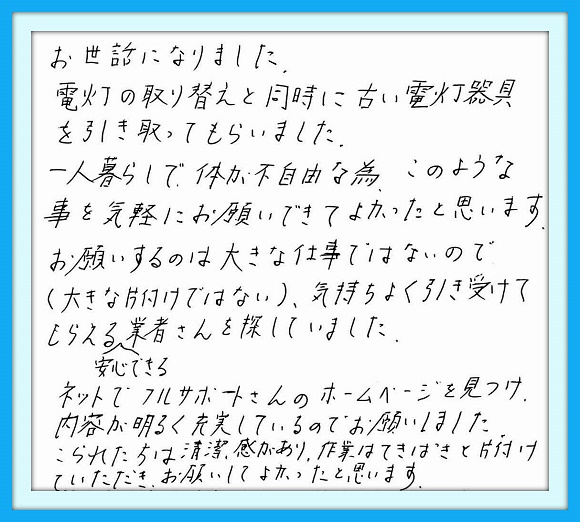 お世話になりました。
電灯の取り替えと同時に古い電灯器具
を引き取ってもらいました。
一人暮らしで、体が不自由な為、このような
事を気軽にお願いできてよかったと思います。
お願いするのは大きな仕事ではないので
(大きな片付けではない)、気持ちよく引き受けて
もらえる業者さんを探していました。
安心できる
ネットでフルサポートさんのホームページを見つけ、
内容が明るく充実しているのでお願いしました。
こられた方は清潔感があり、作業はてきぱきと片付け
ていただき、お願いしてよかったと思います。